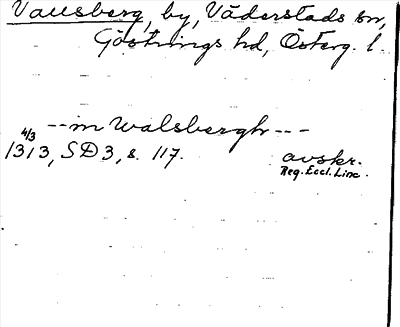 Vallsberg, by, Väderstads sn,
Göstrings hd, Österg. l.
-- in Walsbergh ---
4/3
1313, SD3, s. 117.
avskr.
Reg. Eccl. Linc.